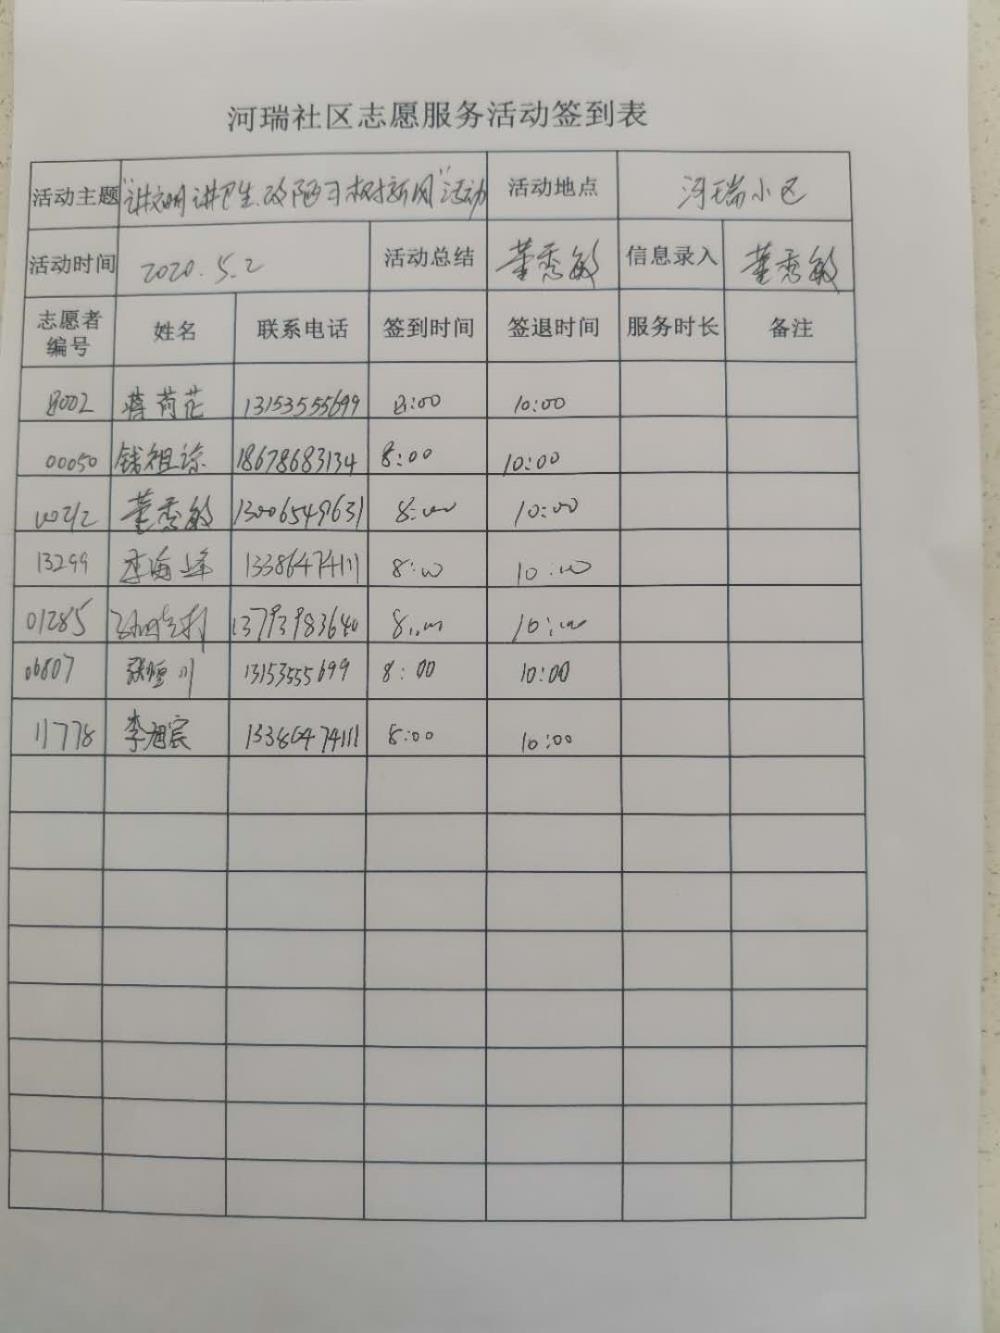 河瑞社区志愿服务活动签到表
活动主题 "讲文明讲卫生.改陋习树新风"活动 活动地点 河瑞小区
活动时间 2020.5.2 活动总结 董秀敏 信息录入 董秀敏
志愿者编号 姓名 联系电话 签到时间 签退时间 服务时长 备注
8002 蒋荷花 13153555699 8:00 10:00
00050 钱祖谅 18678683134 8:00 10:00
董秀敏 13006549631 8:00 10:00
13299 李海峰 13386474111 8:00 10:00
01285 13793983640 8:00 10:00
06807 张恒川 13153555699 8:00 10:00
11778 李旭宸 13386474111 8:00 10:00